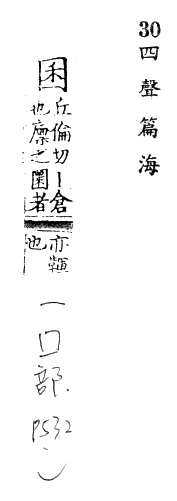 30
四聲篇海
囷
丘倫切丨倉
也廩之圜者
亦
也
一
口部.
P532